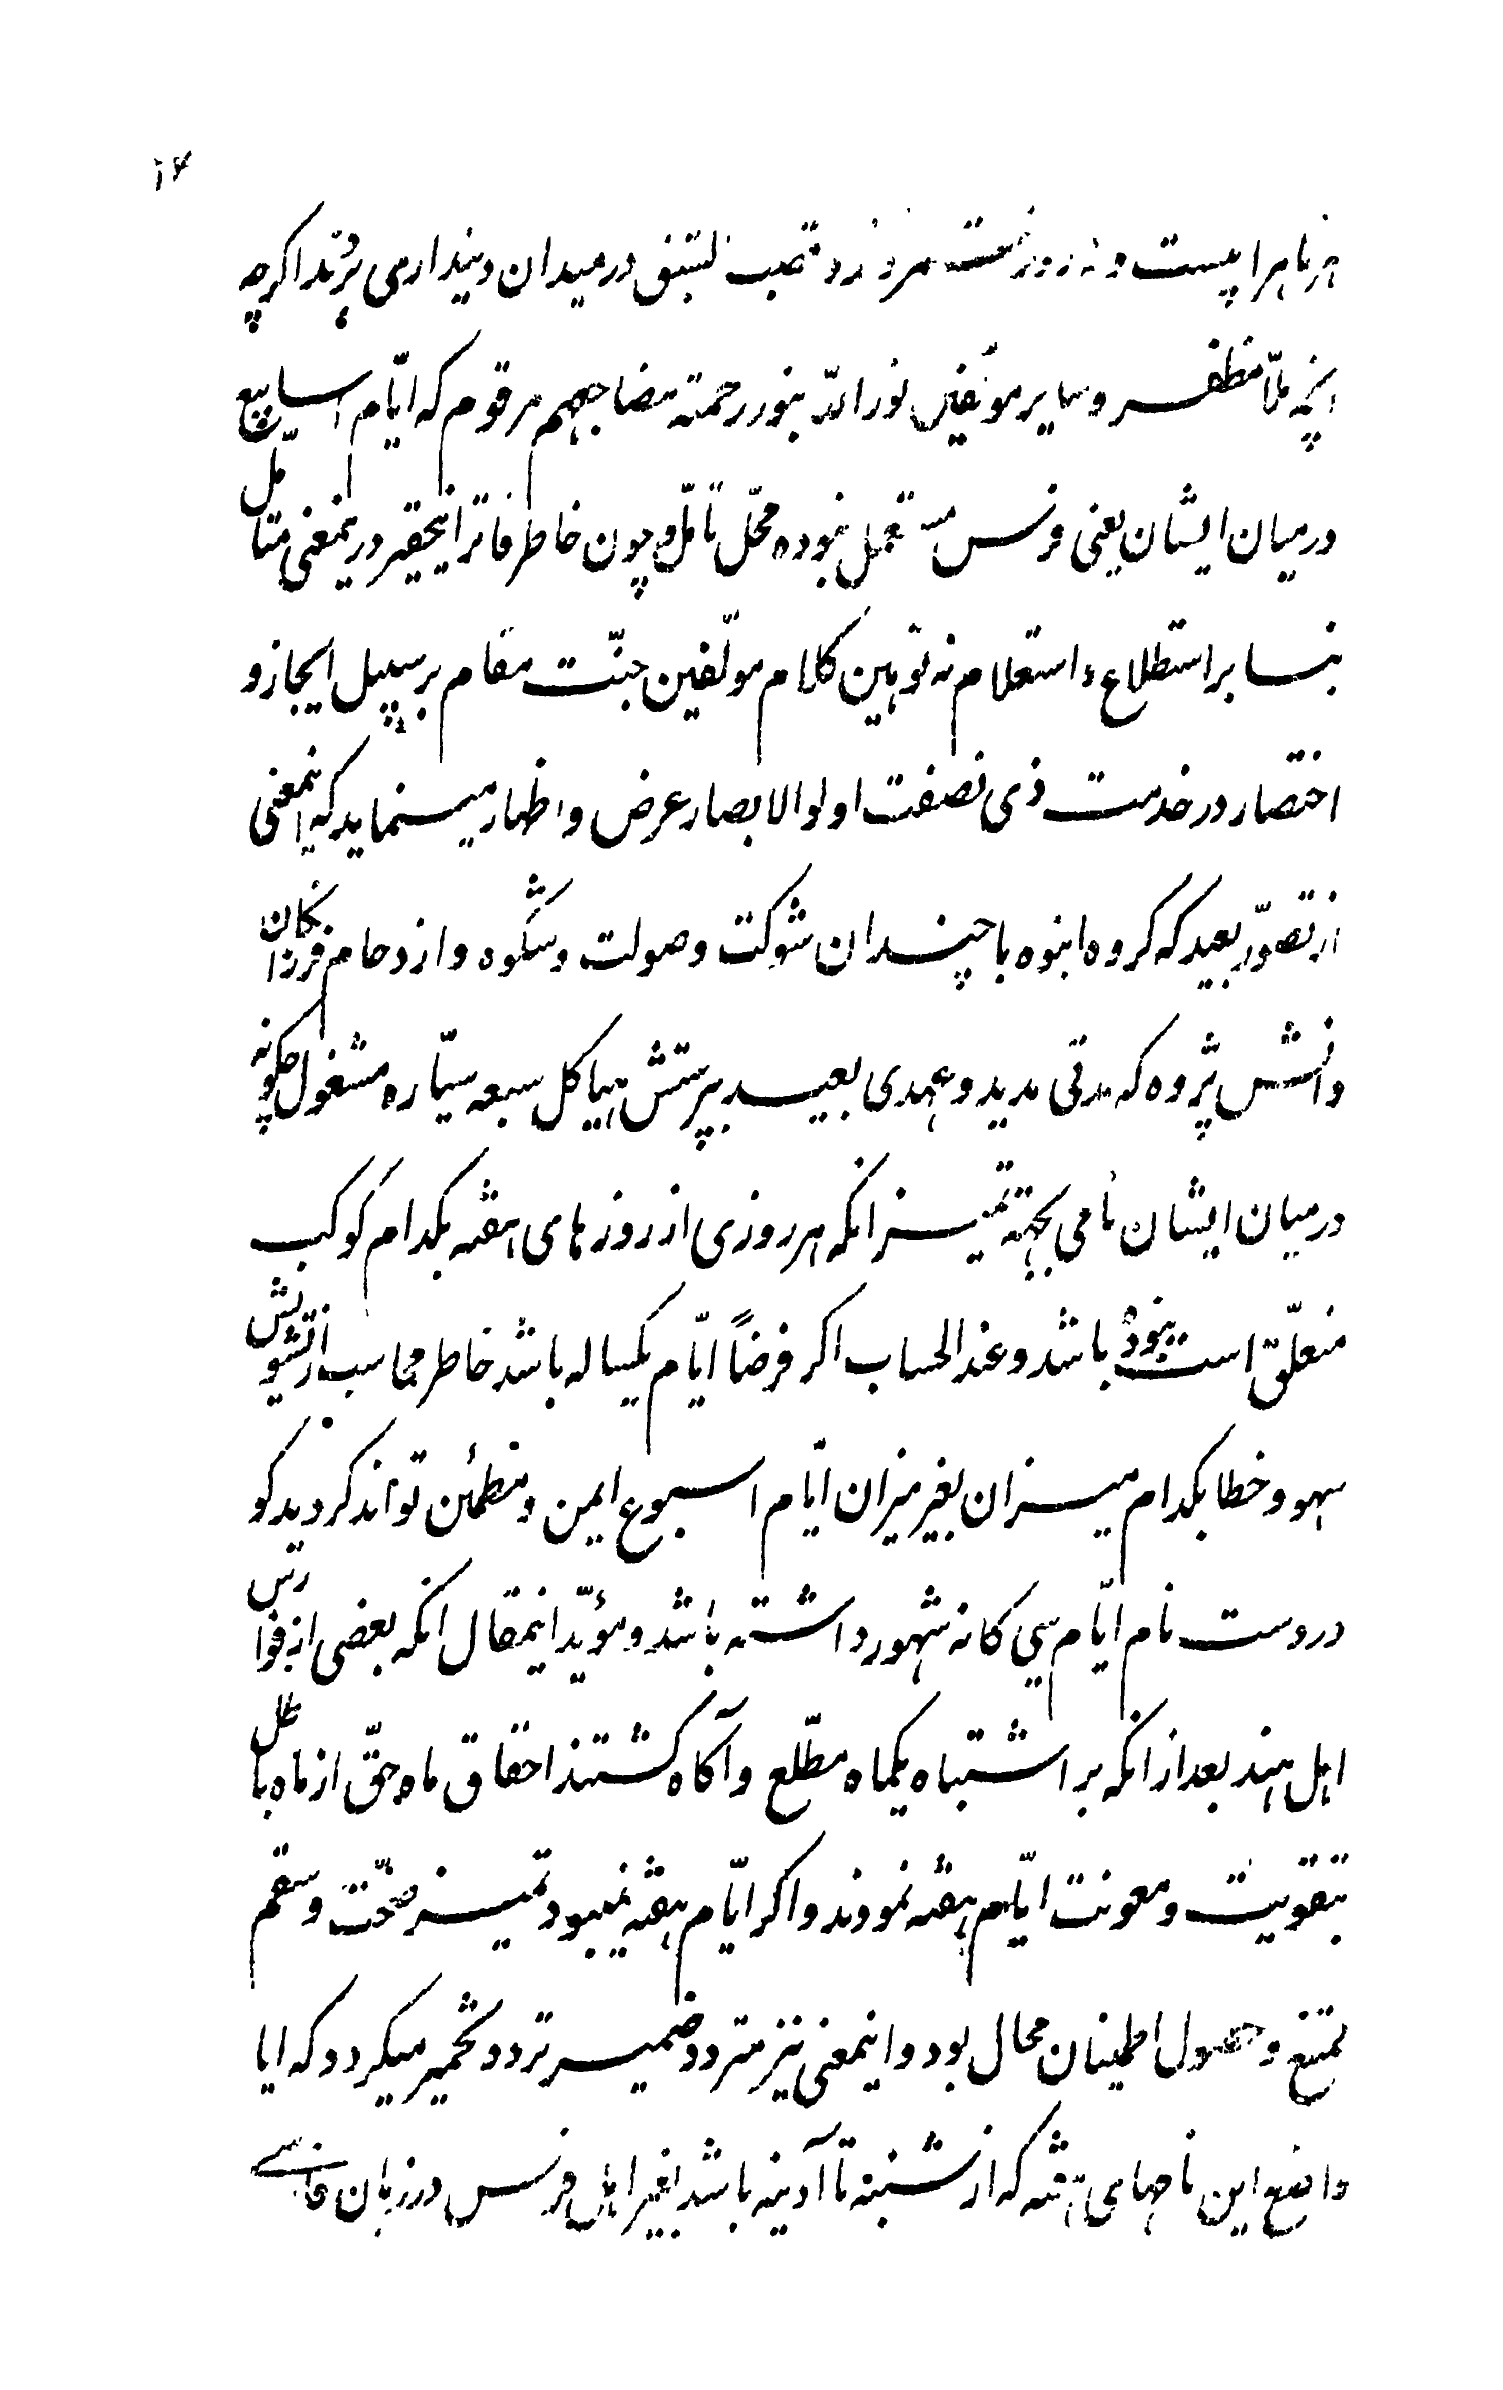 ۱۴
هر ماهرا بیست و نه روز است قصب السبق در میدان دینداری می برند اکرچه
انچه ملا مظفر و سایر مولفین نور الله بنور رحمته مضاجعهم مرقوم که ایّام اسابیع
در میان ایشان یعنی فرس مستعمل نبوده محلّ تامّل و چون خاطر فاتر اینحقیر در ینمعنی متامّل
بنا بر استطلاع و استعلام نه توهین کلام مولّفین جنّت مقام بر سبیل ایجاز و
اختصار در خدمت ذی نصفت اولوالابصار عرض و اظهار مینماید که اینمعنی
از تصوّر بعید که کروه انبوه با چندان شوکت وصولت و شکوه و ازدحام فرزانکان
دانش پژوه که مدتی مدید و عهدی بعید بپرستش هیاکل سبعه سیّاره مشغول چکونه
در میان ایشان نامی بجهته تمیز انکه هر روزی از روزهای هفته بکدام کوکب
متعلّق است نبوده باشد و عند الحساب اکر فرضاً ایّام یکساله باشد خاطر محاسب از تشویش
سهو و خطا بکدام میزان بغیر میزان ایّام اسبوع ایمن و مطمئن تواند کردید کو
در دست نام ایّام سی کانه شهور داشته باشد و مؤیّد اینمقال انکه بعضی از فوارس
اهل هند بعد از انکه بر اشتباه یکماه مطّلع و آکاه کشتند احقاق ماه حقّ از ماه باطل
بتقویت و معونت ایّام هفته نمودند و اکر ایّام هفته نمیبود تمیز صحّت و سقم
ممتنع و حصول اطمینان محال بود و اینمعنی نیز متردد ضمیر تردد تخمیر میکردد که ایا
واضع این نامهای هفته که از شنبه تا آدینه باشد بغیر اهل فرس در زبان فارسی